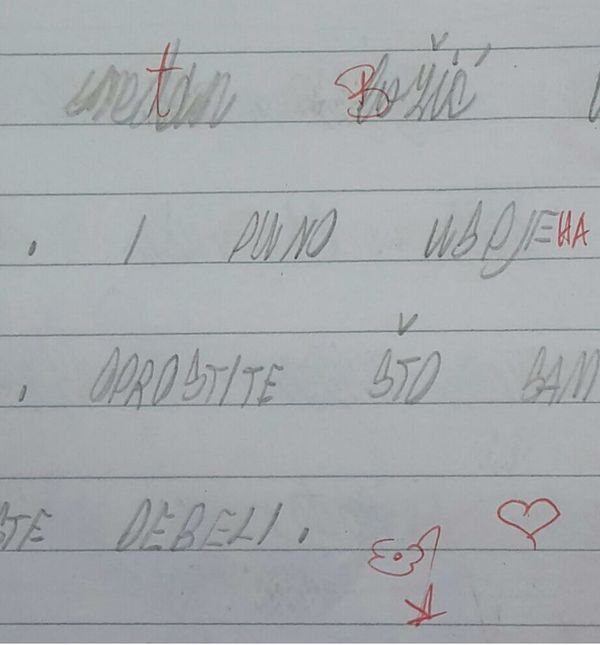 sretan Božić
. I PUNO USPJEHA
. OPROSTITE ŠTO SAM
STE DEBELI.